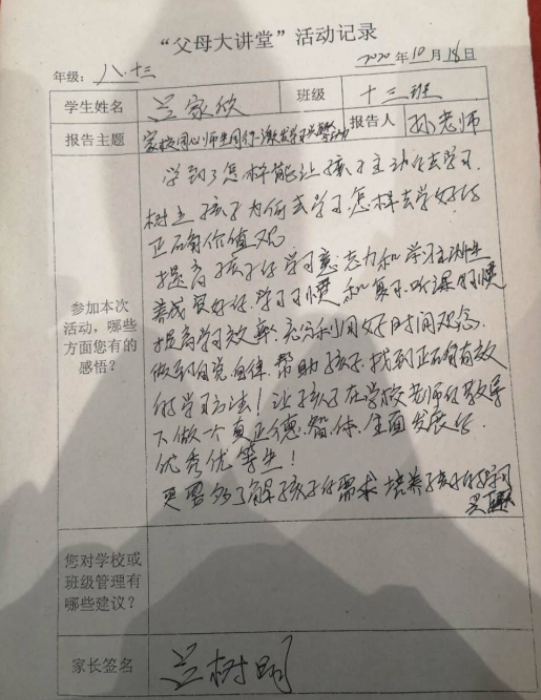 “父母大讲堂”活动记录
年级：八.十三 2020年10月18日
学生姓名 兰家欣 班级 十三班
报告主题 家校同心师生同行激发学习兴趣 报告人 孙老师
学到了怎样能让孩子主动去学习.
树立孩子为何去学习.怎样去学好的
正确价值观
提高孩子的学习意志力和学习主动性
养成良好的学习习惯和复习.听课习惯
提高学习效率.充分利用好时间观念.
做到自觉.自律.帮助孩子.找到正确有效
的学习方法！让孩子在学校老师的教导
下做一个真正德.智.体.全面发展的
优秀优等生！
更要多了解孩子的需求培养孩子的学习
兴趣
参加本次
活动，哪些
方面您有的
感悟？
您对学校或
班级管理有
哪些建议？
家长签名 兰树明